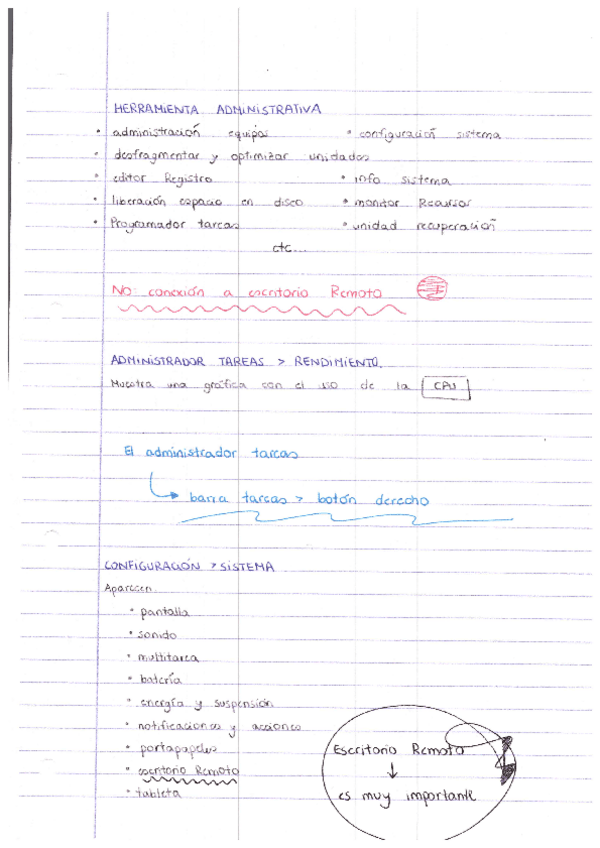 HERRAMIENTA ADMINISTRATIVA
• administración equipos • configuración sistema
• desfragmentar y optimizar unidades
• editor Registro • info sistema
• liberación espacio en disco • monitor Recursos
• Programador tareas • unidad recuperación
etc...
No conexión a escritorio Remoto
ADMINISTRADOR TAREAS > RENDIMIENTO.
Muestra una gráfica con el uso de la CPU
El administrador tareas
barra tareas > botón derecho
CONFIGURACIÓN > SISTEMA
Aparecen
• pantalla
• sonido
• multitarea
• batería
• energía y suspensión
• notificaciones y acciones
• portapapeles
• escritorio Remoto
• tableta
Escritorio Remoto
↓
es muy importante